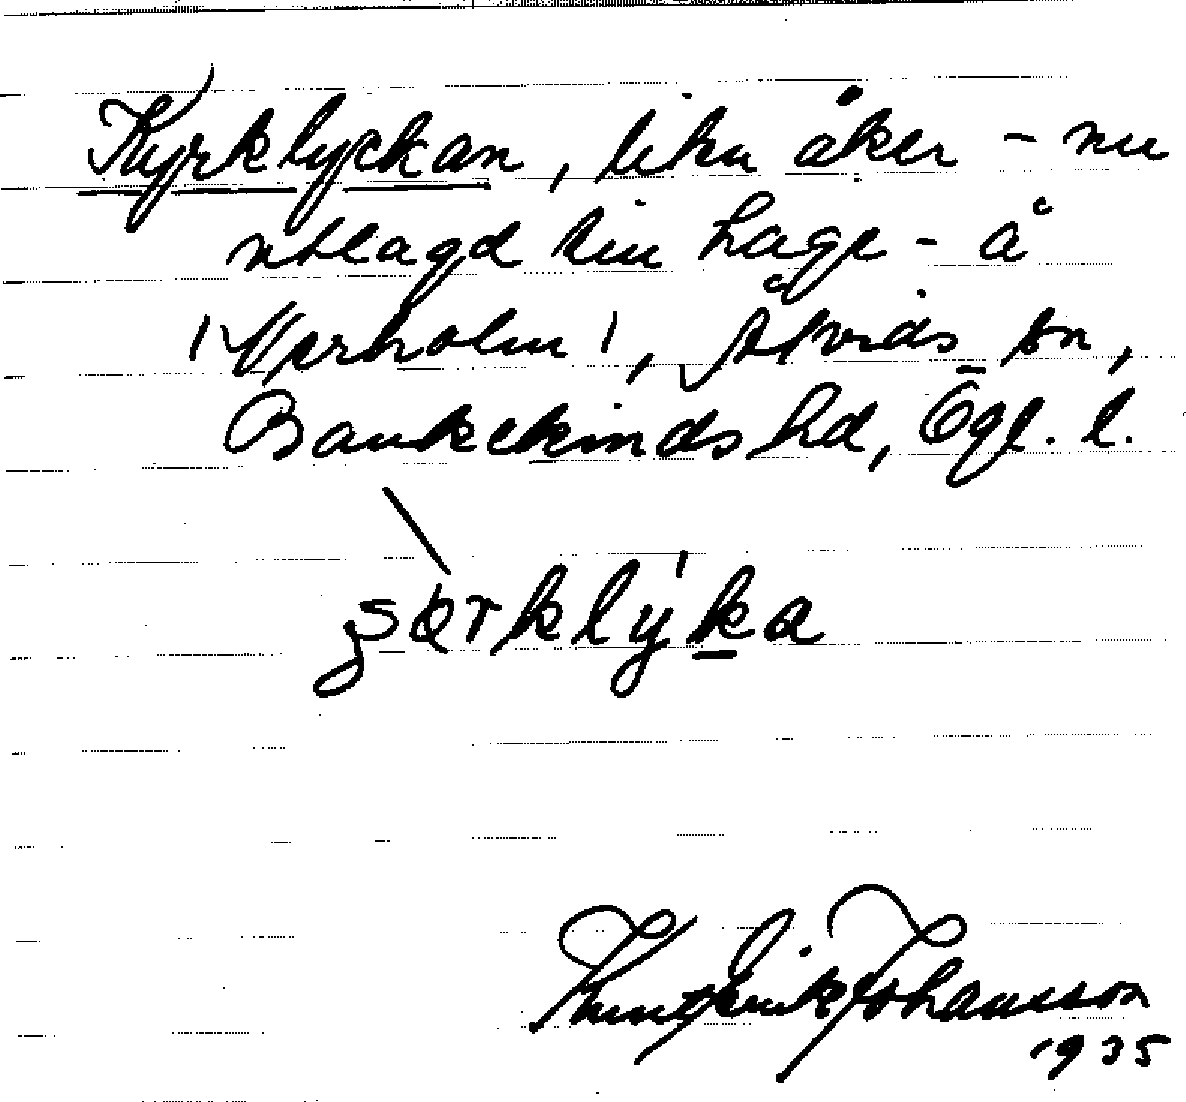 Kyrklyckan, liten åker – nu
utlagd till hage – å
Åtvids sn,
Bankekinds hd, Ögl. l.
Knut Erik Johansson
1935